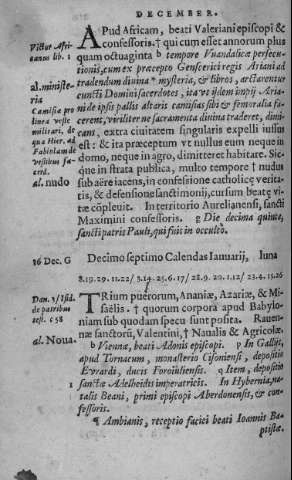 DECEMBER.
Victor Afri-
canus lib. 1
al. ministe-
ria
Camisia pro
linea veste
militari, de
qua Hier. ad
Fabiolam de
vestibus sa-
cerd.
al. nudo
APud Africam, beati Valeriani episcopi &
confessoris. † qui cum esset annorum plus
quam octuaginta b tempore Vuandalicæ persecu-
tionis, cum ex præcepto Genserici regis Ariani ad
tradendum divina * mysteria, & libros, arctarentur
cuncti Domini sacerdotes, ita vt ijdem impij Aria-
ni de ipsis pallis altaris camisias sibi & femoralia fa-
cerent, viriliter ne sacramenta divina traderet, dimi-
cans, extra civitatem singularis expelli iussus
est: & ita præceptum vt nullus eum neque in
domo, neque in agro, dimitteret habitare. Sic-
que in strata publica, multo tempore † nudus
sub aëre iacens, in confessione catholicæ verita-
tis, & defensione sanctimonij, cursum beatę vi-
tæ cōplevit. In territorio Aurelianensi, sancti
Maximini confessoris. g Die decima quinta,
sancti patris Pauli, qui fuit in occulto.
16 Dec. G Decimo septimo Calendas Ianuarij, luna
8.19.29.11.22/ 3.14.25.6.17/ 28.9.20.1.12/ 23.4.15.26
Dan. 3/ Isid.
de patribus
test. c 58
al. Noua-
TRium puerorum, Ananiæ, Azariæ, & Mi-
saëlis. † quorum corpora apud Babylo-
niam sub quodam specu sunt posita. Raven-
næ sanctorũ, Valentini, † Naualis & Agricolæ.
b Viennæ, beati Adonis episcopi. g In Gallijs,
apud Tornacum, monasterio Cisoniensi, depositio
Evrardi, ducis Foroiuliensis. q Item, depositio
sanctæ Adelheidis imperatricis. In Hybernia, na-
talis Beani, primi episcopi Aberdonensis, & con-
fessoris.
¶ Ambianis, receptio faciei beati Ioannis Ba-
ptistæ.